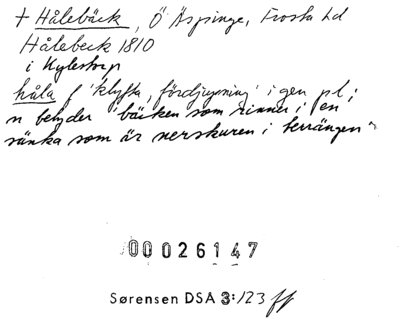 + Hålebäck, Ö Äspinge, Frosta hd
Hålebeck 1810
i Kylestorp
håla f 'klyfta, fördjupning' i gen pl;
n betyder 'bäcken som rinner i en
sänka som är nerskuren i terrängen'
00026147
Sørensen DSA 3:123 ff